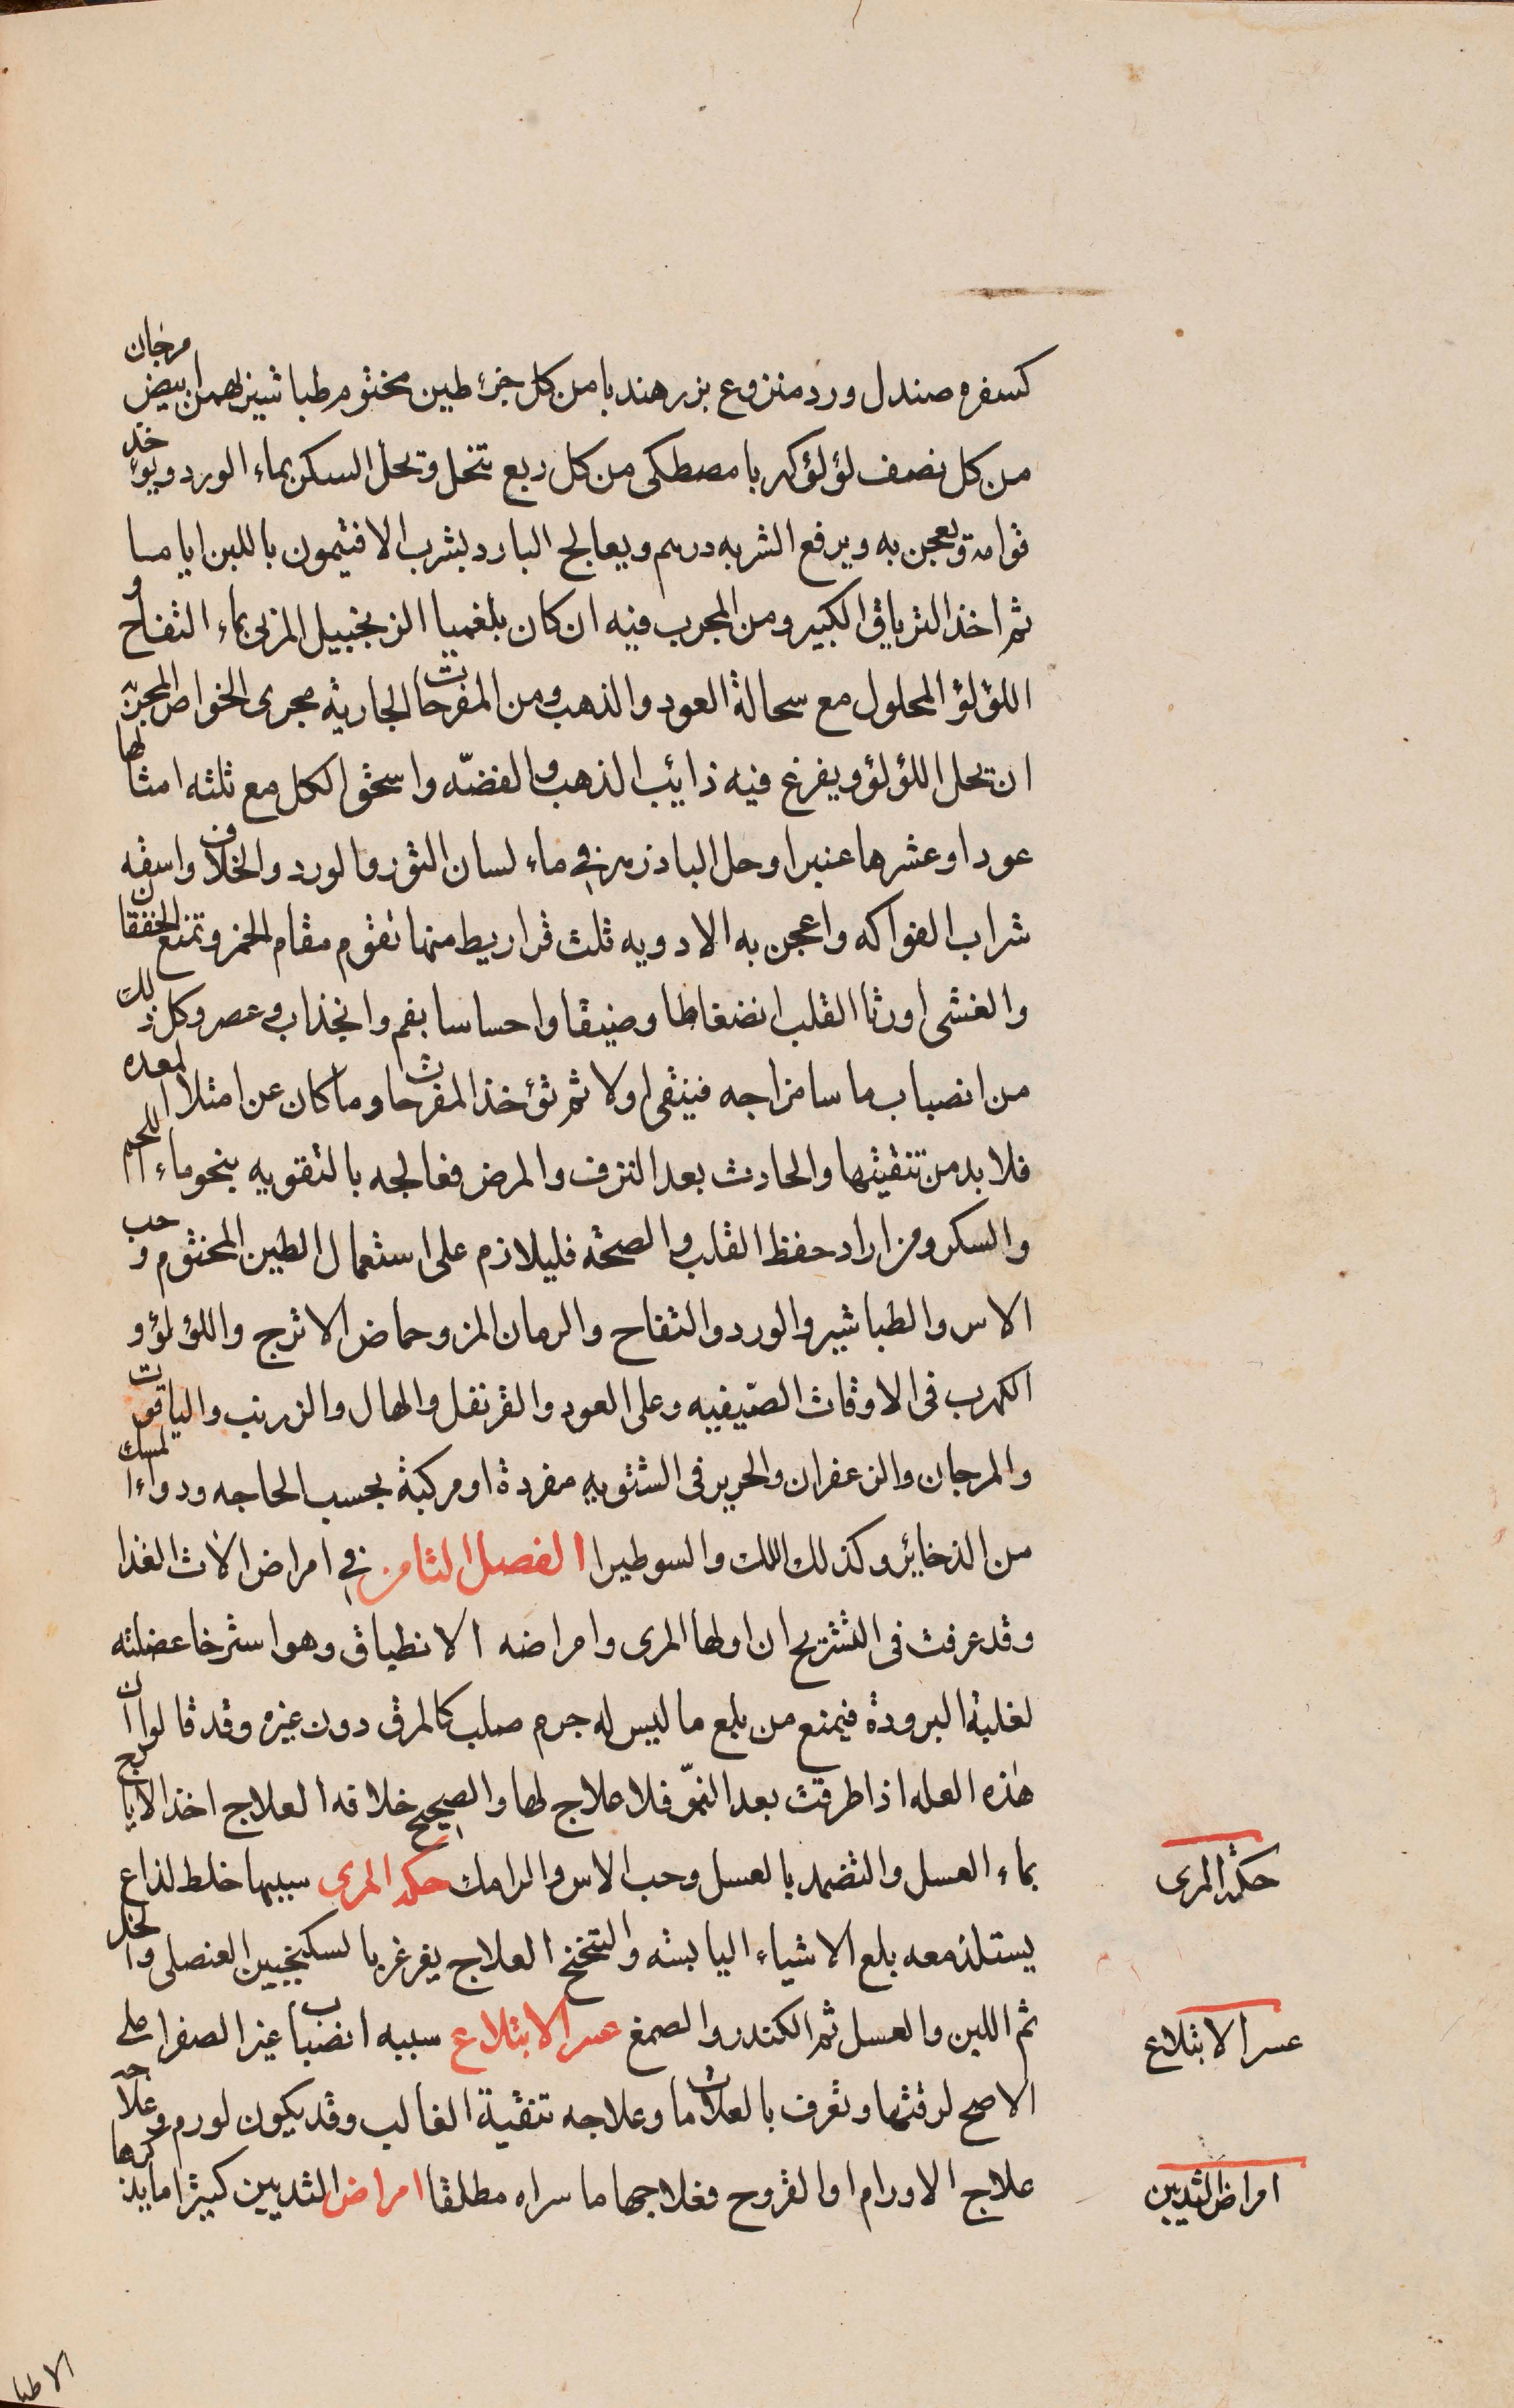 كسفره صندل ورد منزوع بزر هندبا من كل جزء طين مختوم طباشير بهمن ابيض مرجان
من كل نصف لؤلؤ كهربا مصطكى من كل ربع تنخل وتحل السكر بماء الورد ويؤخذ
قوامه وتعجن به ويرفع الشربه درهم ويعالج البارد بشرب الافتيمون باللبن اياما
ثم اخذ الترياق الكبير ومن المجرب فيه ان كان بلغميا الزنجبيل المربى بماء التفاح و
اللؤلؤ المحلول مع سحالة العود والذهب ومن المفرحات الجاريه مجرى الخواص المجربة
ان تحل اللؤلؤ ويفرغ فيه ذايب الذهب والفضّه واسحق الكل مع ثلثه امثالها
عودا وعشرها عنبرا وحل البادزهر في ماء لسان الثور والورد والخلاف واسقه
شراب الفواكه واعجن به الادويه ثلث قراريط منها تقوم مقام الخمر وتمنع الخفقان
والغشى اورثا القلب انضغاطا وضيقا واحساسا بغم وانجذاب وعصر وكل ذلك
من انصباب ما سا مزاجه فينقى اولا ثم تؤخذ المفرحات وما كان عن امتلا المعده
فلا بد من تنقيتها والحادث بعد النزف والمرض فعالجه بالتقويه بنحو ماء اللحم
والسكر ومن اراد حفظ القلب والصحة فليلازم على استعمال الطين المختوم وحب
الاس والطباشير والورد والتفاح والرمان المز وحماض الاترج واللؤلؤ و
الكهرب فى الاوقات الصيفيه وعلى العود والقرنفل والهال والزرنب والياقوت
والمرجان والزعفران والحرير فى الشتويه مفردة او مركبة بحسب الحاجه ودواء المسك
من الذخائر وكذلك اللك والسوطيرا الفصل الثامن في امراض الات الغذا
وقد عرفت فى التشريح ان اولها المرى وامراضه الانطباق وهو استرخا عضلته
لغلبة البرودة فيمنع من بلع ما ليس له جرم صلب كالمرق دون غيره وقد قالوا ان
هذه العله اذا طرقت بعد النموّ فلا علاج لها والصحيح خلافه العلاج اخذ الايارج
بماء العسل والتضمد بالعسل وحب الاس والرامك حكة المرى سببها خلط لذاع
يستلذ معه بلع الاشياء اليابسه والتنحنح العلاج يغرغر بالسكنجبين العنصلى والخل
ثم اللبن والعسل ثم الكندر والصمغ عسر الابتلاع سببه انصباب غير الصفرا على
الاصح لرقتها وتعرف بالعلامات وعلاجه تنقية الغالب وقد يكون لورم وعلاجه
علاج الاورام او القروح فعلاجها ما سراه مطلقا امراض الثديين كثيرا ما يذكرها
حكة المرى
عسر الابتلاع
امراض الثديين
الاطبا